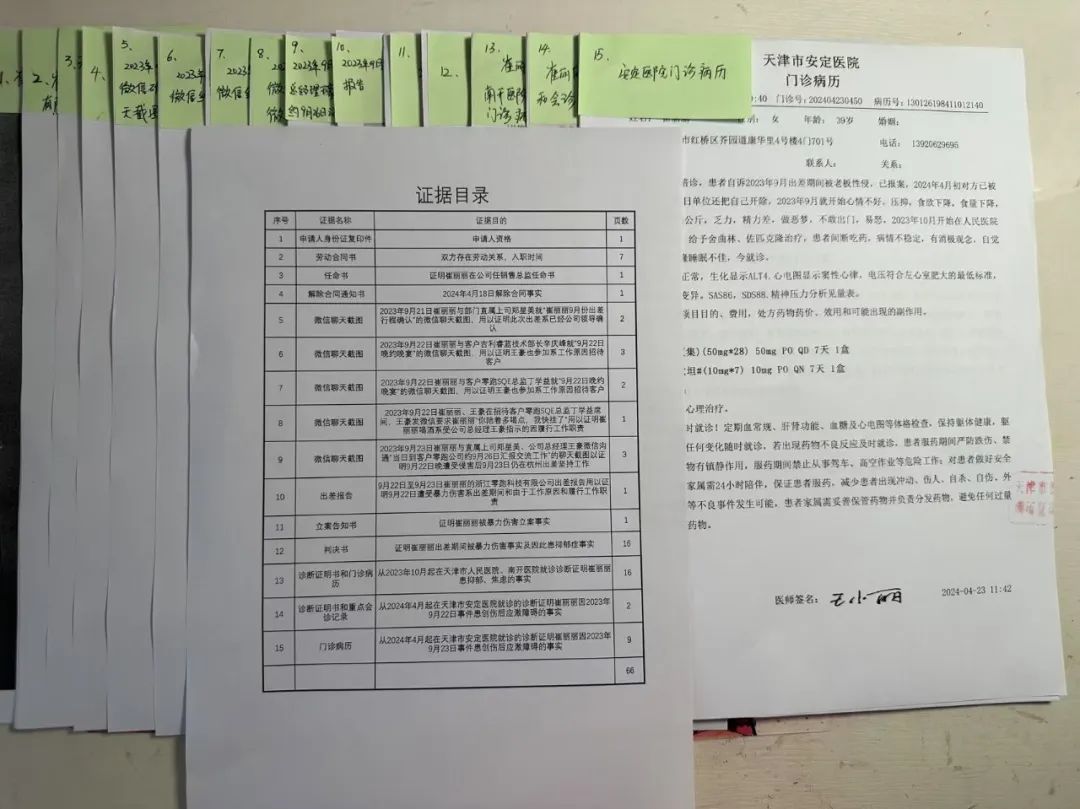 5、
2023年
微信
天截图
6、
2023
微信
7、
2023
微信
8、
9、
2023年9月
总经理
10、
2023年9月
报告
11、
12、
13、
南开医院
门诊病
14、
和会诊
15、
安定医院门诊病历
1、
2、
3、
4、
证据目录
序号 证据名称 证据目的 页数
1 申请人身份证复印件 申请人资格 1
2 劳动合同书 双方存在劳动关系、入职时间 7
3 任命书 证明崔丽丽在公司任销售总监任命书 1
4 解除合同通知书 2024年4月18日解除合同事实 1
5 微信聊天截图 2023年9月21日崔丽丽与部门直属上司郑星美就"崔丽丽9月份出差
行程确认"的微信聊天截图，用以证明此次出差系已经公司领导确
认 2
6 微信聊天截图 2023年9月22日崔丽丽与客户吉利睿蓝技术部长辛庆峰就"9月22日
晚约晚宴"的微信聊天截图，用以证明王豪也参加系工作原因招待
客户 3
7 微信聊天截图 2023年9月22日崔丽丽与客户零跑SQE总监丁学益就"9月22日晚约
晚宴"的微信聊天截图，用以证明王豪也参加系工作原因招待客户 2
8 微信聊天截图 2023年9月22日崔丽丽、王豪在招待客户零跑SQE总监丁学益席
间，王豪发微信要求崔丽丽"你陪着多喝点，我快挂了"用以证明崔
丽丽喝酒系受公司总经理王豪指示的因履行工作职责 1
9 微信聊天截图 2023年9月23日崔丽丽与直属上司郑星美、公司总经理王豪微信沟
通"当日到客户零跑公司约9月26日汇报交流工作"的聊天截图以证
明9月22日晚遭受侵害后9月23日仍在杭州出差坚持工作 3
10 出差报告 9月22日至9月23日崔丽丽的浙江零跑科技有限公司出差报告用以证
明9月22日遭受暴力伤害系出差期间和由于工作原因和履行工作职
责 1
11 立案告知书 证明崔丽丽被暴力伤害立案事实 1
12 判决书 证明崔丽丽出差期间被暴力伤害事实及因此患抑郁症事实 16
13 诊断证明书和门诊病
历 从2023年10月起在天津市人民医院、南开医院就诊诊断证明崔丽丽
患抑郁、焦虑的事实 16
14 诊断证明书和重点会
诊记录 从2024年4月起在天津市安定医院就诊的诊断证明崔丽丽因2023年
9月22日事件患创伤后应激障碍的事实 2
15 门诊病历 从2024年4月起在天津市安定医院就诊的诊断证明崔丽丽因2023年
9月23日事件患创伤后应激障碍的事实 9
66
天津市安定医院
门诊病历
:40 门诊号：202404230450 病历号：130126198411012140
女 年龄： 39岁 婚姻：
市红桥区芥园道康华里4号楼4门701号 电话： 13920629695
联系人： 关系：
诊，患者自诉2023年9月出差期间被老板性侵，已报案，2024年4月初对方已被
日单位还把自己开除，2023年9月就开始心情不好，压抑，食欲下降，食量下降，
公斤，乏力，精力差，做恶梦，不敢出门，易怒，2023年10月开始在人民医院
给予舍曲林、佐匹克隆治疗，患者间断吃药，病情不稳定，有消极观念，自觉
睡眠不佳，今就诊。
正常，生化显示ALT4，心电图示窦性心律，电压符合左心室肥大的最低标准，
变异。SAS86，SDS88，精神压力分析见量表。
项目目的、费用，处方药物药价、效用和可能出现的副作用。
集)(50mg*28) 50mg PO QD 7天 1盒
坦#(10mg*7) 10mg PO QN 7天 1盒
心理治疗。
时就诊！定期血常规、肝肾功能、血糖及心电图等体格检查，保持躯体健康，躯
任何变化随时就诊，若出现药物不良反应及时就诊，患者服药期间严防跌伤、禁
物有镇静作用，服药期间禁止从事驾车、高空作业等危险工作；对患者做好安全
家属需24小时陪伴，保证患者服药，减少患者出现冲动、伤人、自杀、自伤、外
等不良事件发生可能，患者家属需妥善保管药物并负责分发药物，避免任何过量
药物。
医师签名： 2024-04-23 11:42